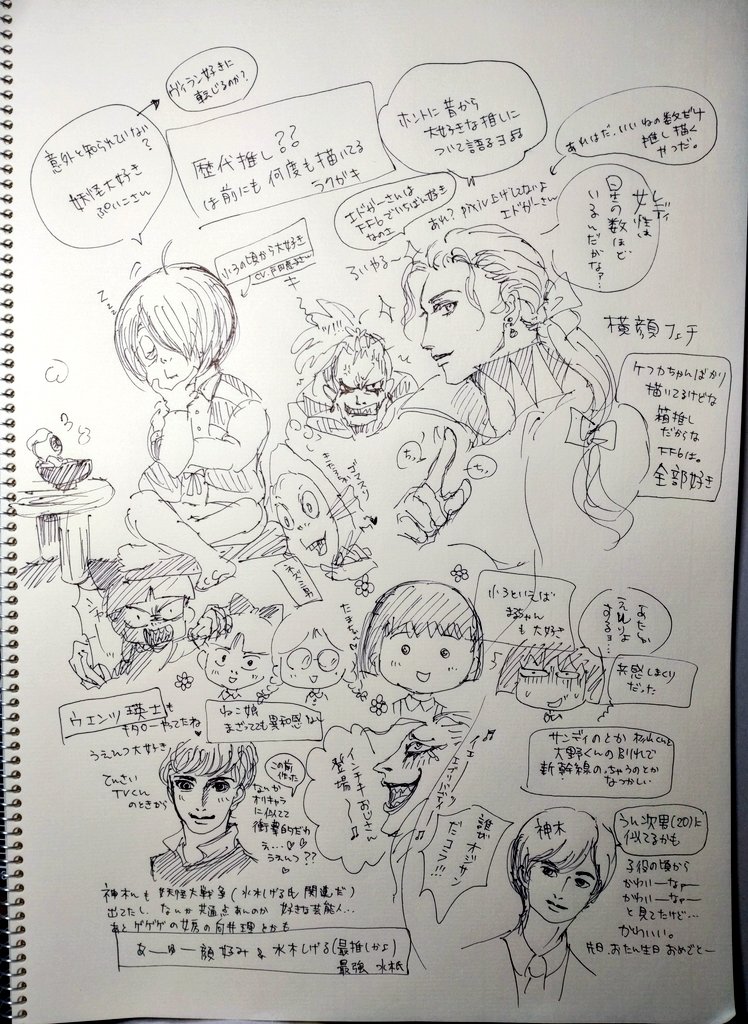 ヴィラン好きに
転じるのか?
意外と知られていない
?
妖怪大好き
ぷいこさん
歴代推し??
は前にも何度も描いてる
ラクガキ
ホントに昔から
大好きな推しに
ついて語るヨ
あれはだ、いいねの数だけ
推し描く
やつだ。
エドガーさんは
FF6でいちばん好き
なのェ
あれ?pixiv上げてないよ
エドガーさん
レディ
女性は
星の数ほど
いるんだがな?…
小3の頃から大好き
るいやる〜
横顔フェチ
ケフカちゃんばかり
描いてるけどな
箱推し
だからな
FF6は。
全部好き
ちっ
ちっ
たまちゃん
小3といえば
まるちゃん
も大好き
あたしゃ
共感しまくり
だった
ウエンツ瑛士も
キタローやってたね
ねこ娘
まざってても違和感ない
サンディのとか杉山くんと
大野くんの別れで
新幹線のっちゃうのとか
なつかしい
うえんつ大好き
てんさい
TVくん
のときから
この前
作った
なんか
オリキャラ
に似てて
衝撃的だわ
え…
うえんつ??
インチキおじさん
登場〜
誰が
オジサン
だコラ!!!
神木
うん次男(20)に
似てるかも
子役の頃から
かわいーなァー
かわいーなァー
と見てたけど…
かわいい。
先日、おたん生日おめでとー
神木くんも妖怪大戦争(水木しげる氏関連だ)
出てたし、なんか共通点あんのか 好きな芸能人…
あとゲゲゲの女房の向井理とかも
あーゆー顔好み&水木しげる(最推しかよ)
最強 水木